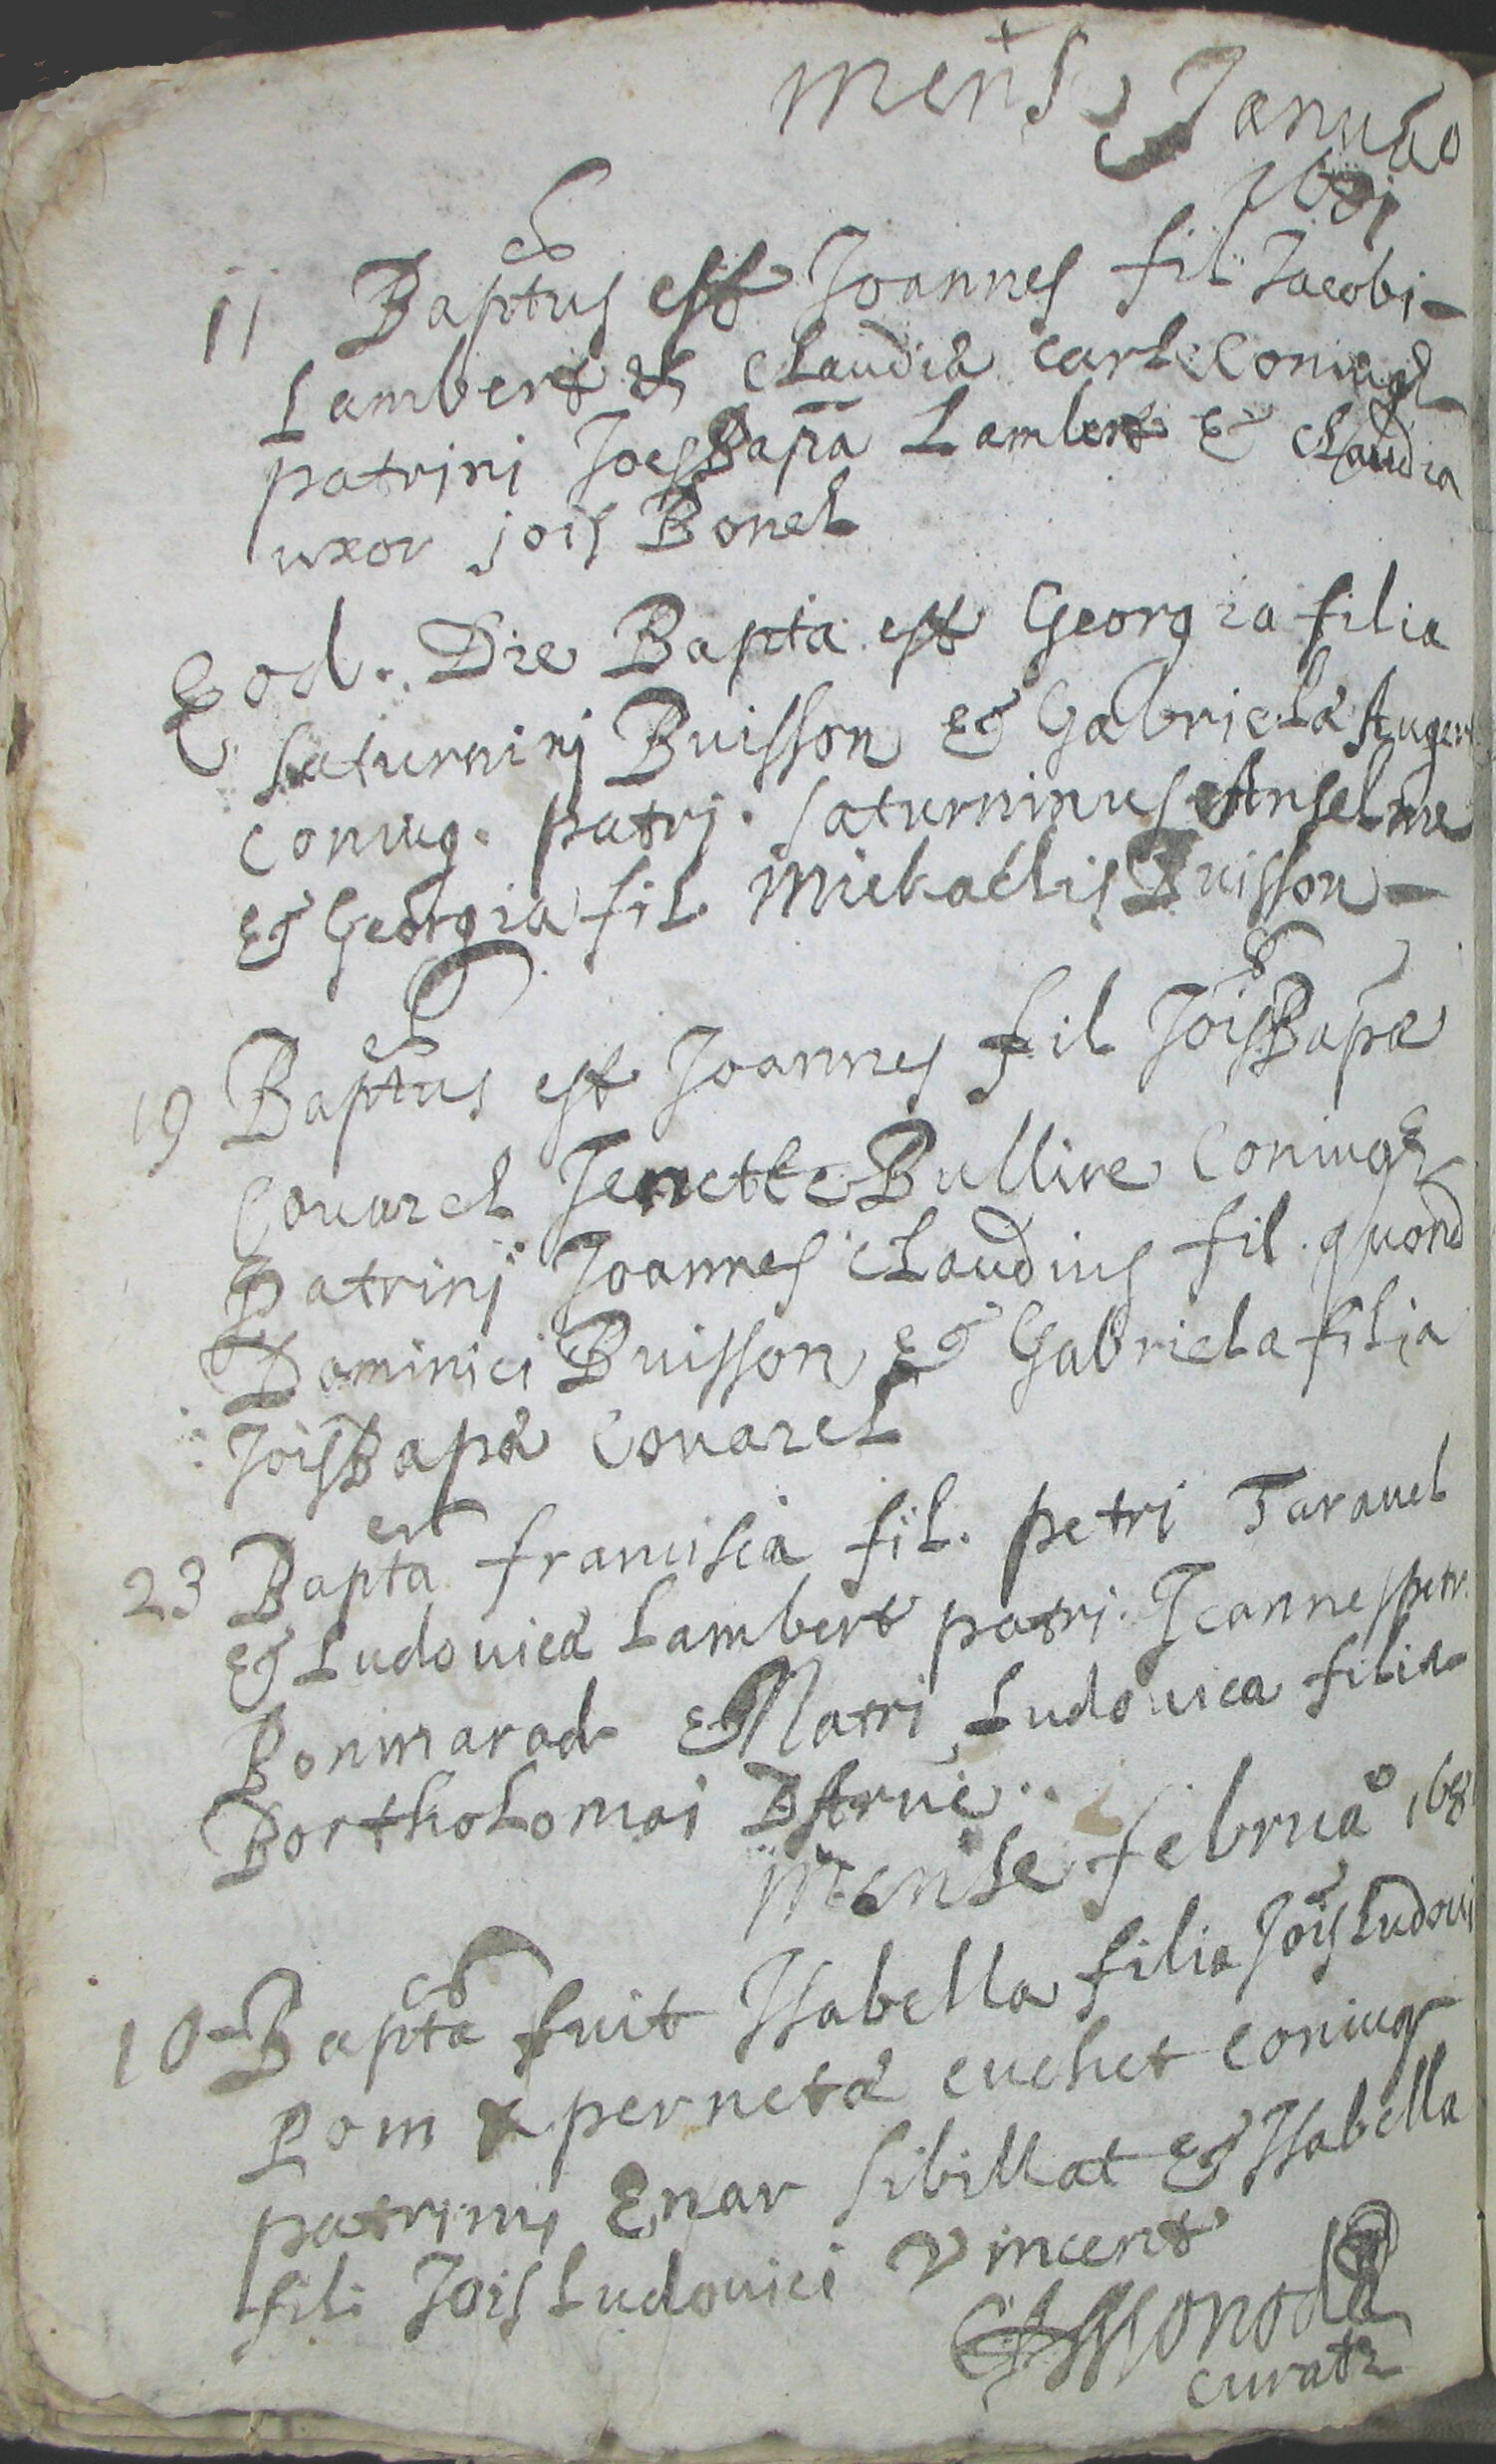 Mense Januario
1681
11 Baptus est Joannes fil. Jacobi
Lambert & Claudia Carle Coniug
patrini Joes Bapta Lambert & Claudia
uxor jois Bonel
Eod. Die Bapta est Georgia filia
Saturnini Buisson & Gabriela Augert
Coniug. patri. Saturninus Anselme
& Georgia fil. Michaelis Buisson
19 Baptus est Joannes fil Jois Bapa
Couarel Jenette Bullive Coniug
Patrinj Joannes Claudius fil. quond
Dominici Buisson & Gabriela filia
Jois Bapa Couarel
23 Bapta est francisca fil. petri Taravel
& Ludovica Lambert patri. Joannes petr.
Bonmarad & Matri Ludovica filia
Bortholomai
Mense februao 168
10 Bapta fuit Isabella filia Jois Ludovi
Pom & perneta euchet coniug
patrinij Enar Sibillat & Isabella
fili Jois Ludovici Vincent
curatr